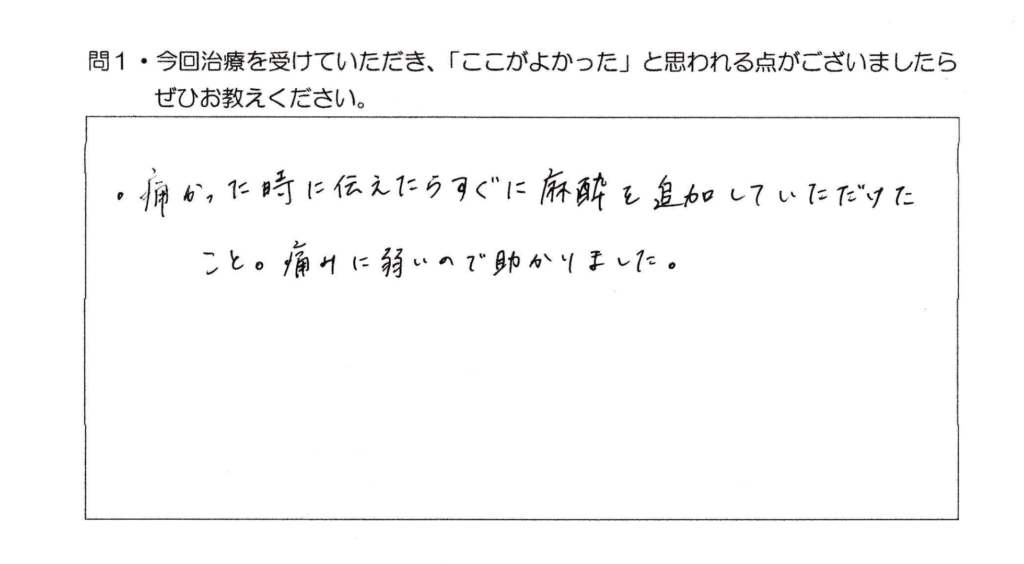 問1・今回治療を受けていただき、「ここがよかった」と思われる点がございましたら
ぜひお教えください。
・痛かった時に伝えたらすぐに麻酔を追加していただけた
こと。痛みに弱いので助かりました。